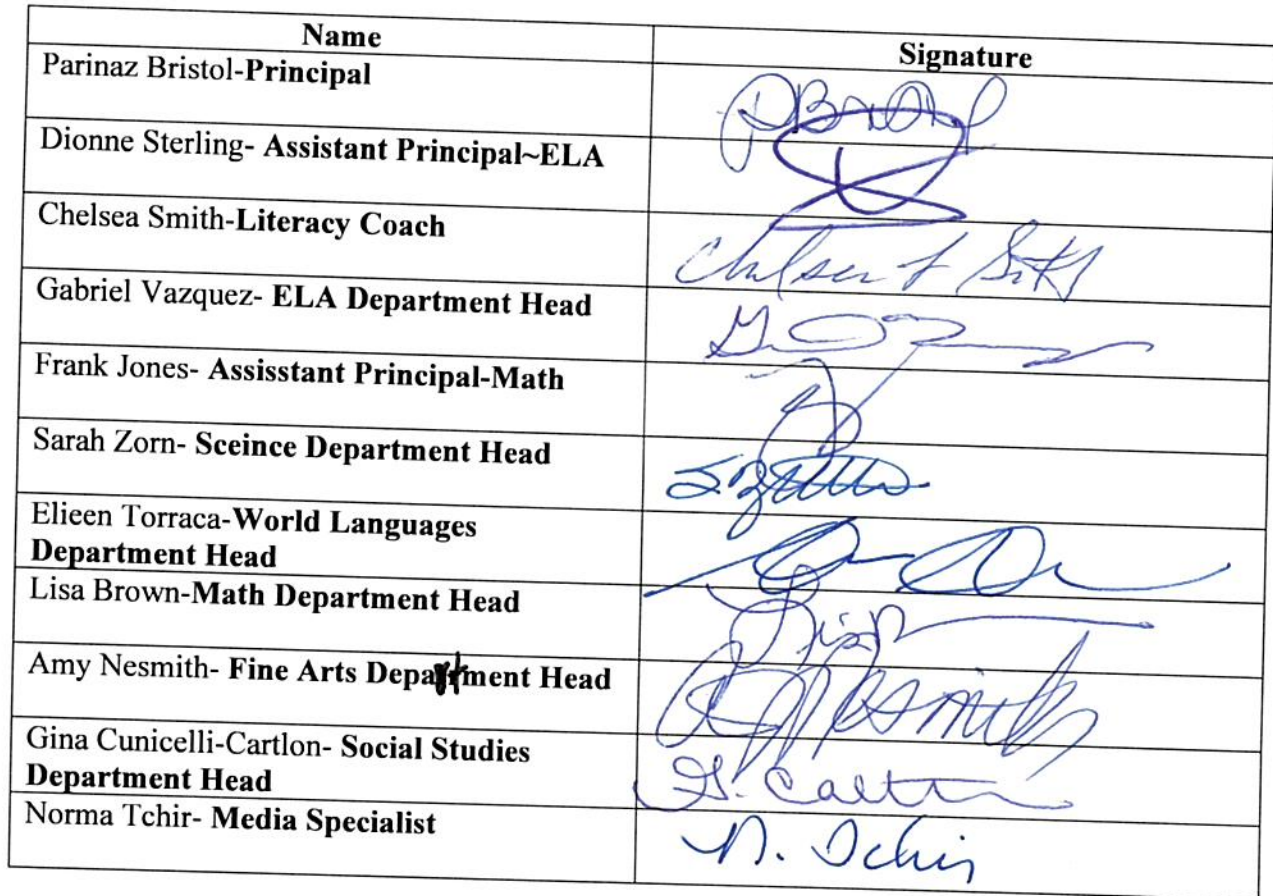 Name
Signature
Parinaz Bristol-Principal
PBristol
Dionne Sterling- Assistant Principal~ELA
Chelsea Smith-Literacy Coach
Chelsea
Gabriel Vazquez- ELA Department Head
Frank Jones- Assisstant Principal-Math
Sarah Zorn- Sceince Department Head
Elieen Torraca-World Languages
Department Head
Lisa Brown-Math Department Head
Lisa
Amy Nesmith- Fine Arts Department Head
Nesmith
Gina Cunicelli-Cartlon- Social Studies
Department Head
Norma Tchir- Media Specialist
N. Tchir